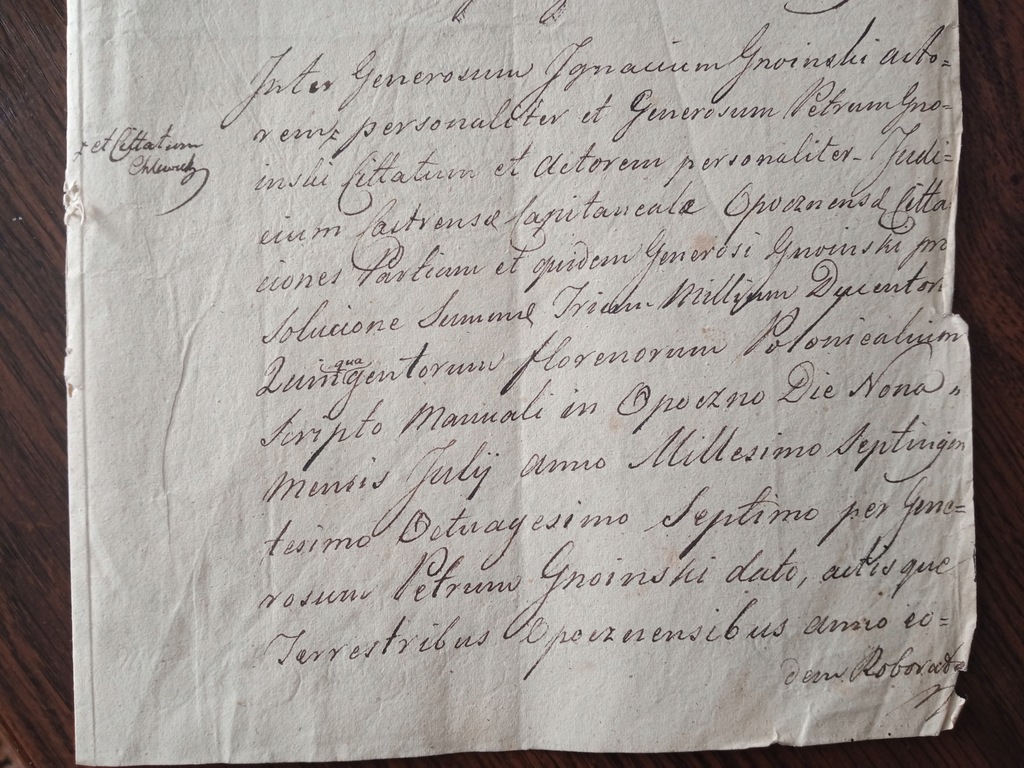 Inter Generosum Ignacium Gnoinski acto=
rem+ personaliter et Generosum Petrum Gno=
+ et Cittatum
Chlewicky
inski Cittatum et Actorem personaliter. Judi=
cium Castrense Capitaneale Opocznense Citta
ciones Partium et quidem Generosi Gnoinski pro
Solucione Summe Trium Millium Ducentor
Quinquagentorum florenorum Polonicalium
Scripto Manuali in Opoczno Die Nona
mensis Julij anno Millesimo Septingen
tesimo Octuagesimo Septimo per Gene=
rosum Petrum Gnoinski dato, actisque
Terrestribus Opocznensibus anno eo=
dem Roborato